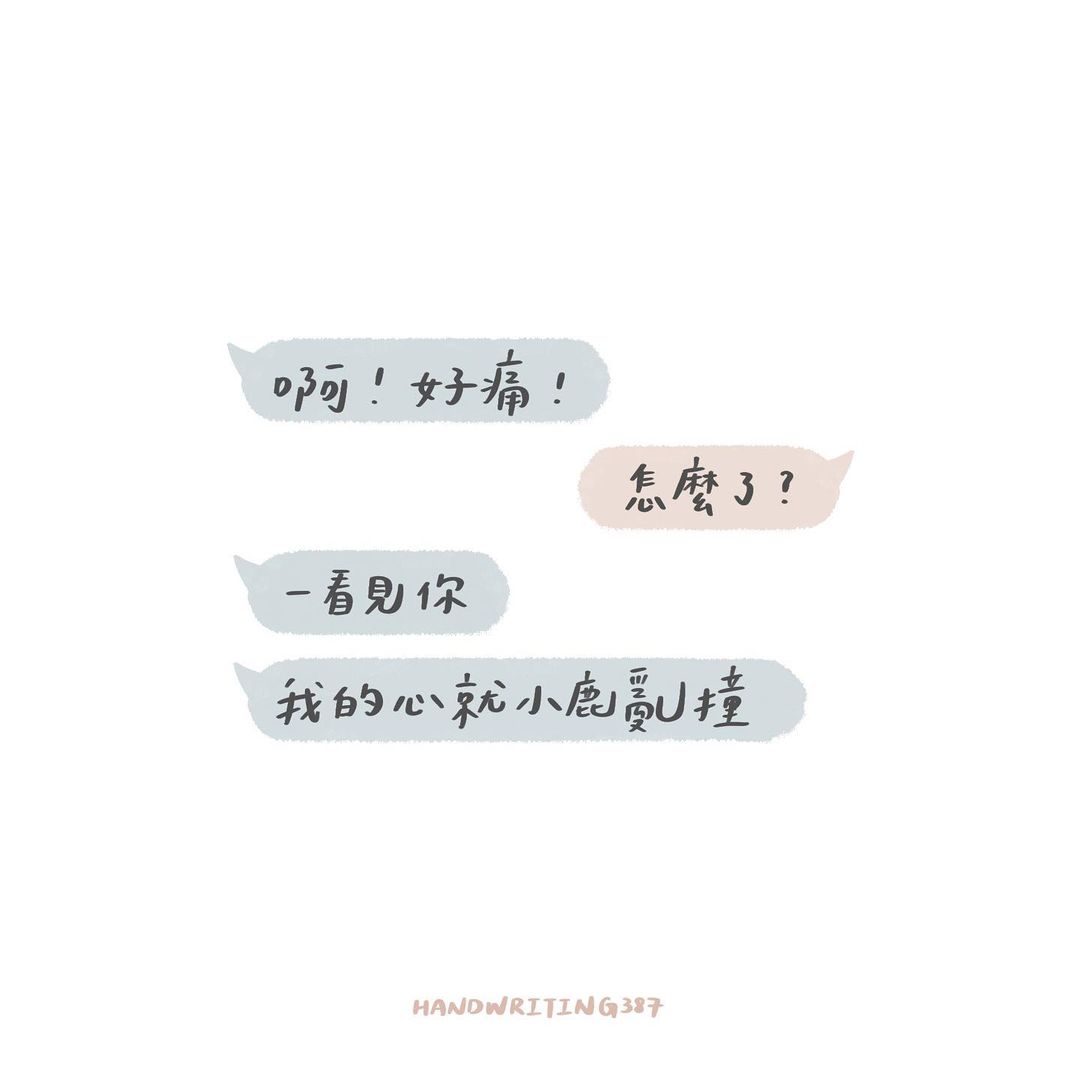 啊！好痛！
怎麼了？
一看見你
我的心就小鹿亂撞
HANDWRITING387